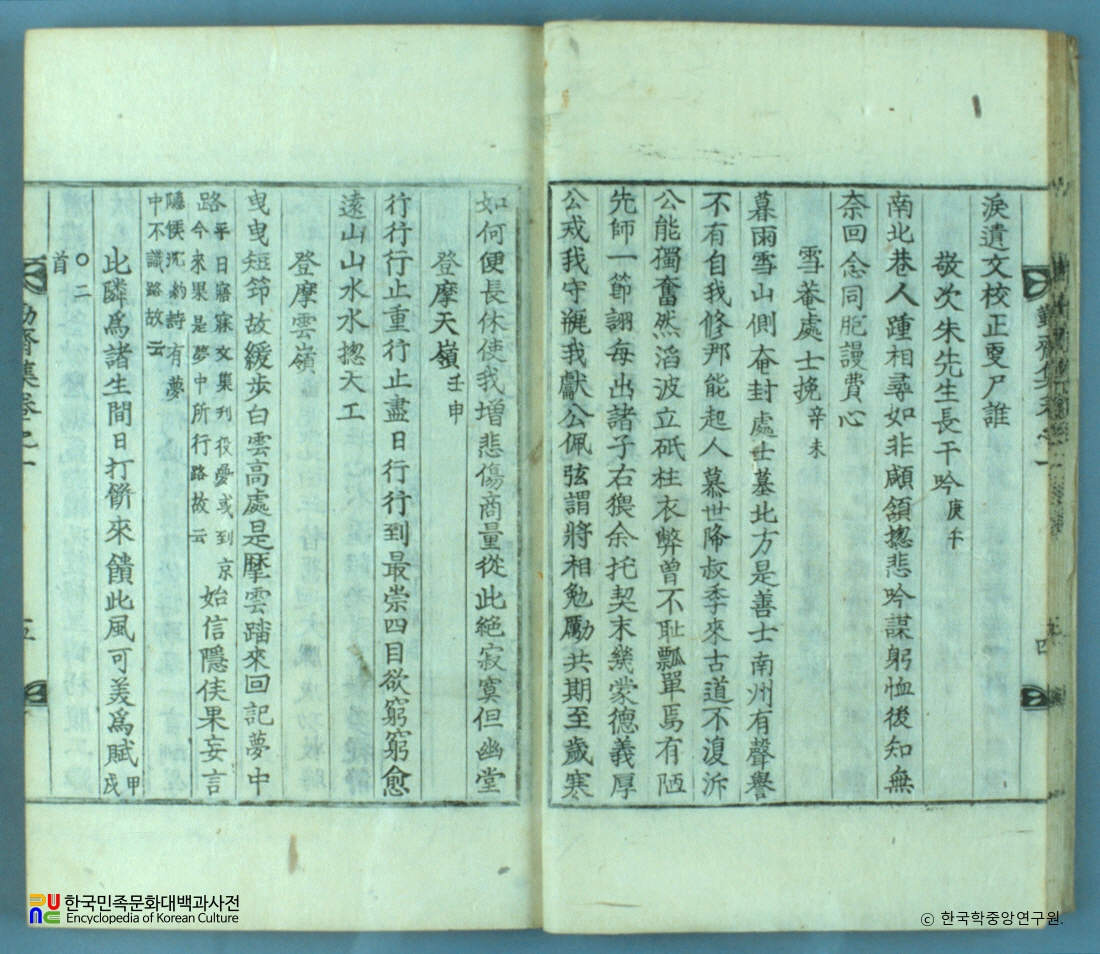 淚遺文校正更尸誰
敬次朱先生長干吟 庚午
南北巷人踵相尋如非顑頷揔悲吟謀躬恤後知無
奈回念同胞謾費心
雪菴處士挽 辛未
暮雨雪山側奄封處士墓北方是善士南州有聲譽
不有自我修那能起人慕世降叔季來古道不復泝
公能獨奮然滔波立砥柱衣弊曾不恥瓢單焉有陋
先師一節詡每出諸子右猥余托契末幾蒙德義厚
公戎我守甁我獻公佩弦謂將相勉勵共期至歲寒
如何便長休使我增悲傷商量從此絶寂寞但幽堂
登摩天嶺 壬申
行行行止重行止盡日行行到最崇四目欲窮窮愈
遠山山水水揔天工
登摩雲嶺
曳曳短筇故緩步白雲高處是摩雲踏來回記夢中
路 平日寤寐文集刊役憂或到京
今來果是夢中所行路故云 始信隱侯果妄言
隱侯沉約詩有夢
中不識路故云
此隣爲諸生間日打餠來饋此風可美爲賦 甲戌
○二
首
勤齋集卷之一
四
五
한국민족문화대백과사전
Encyclopedia of Korean Culture
ⓒ 한국학중앙연구원.